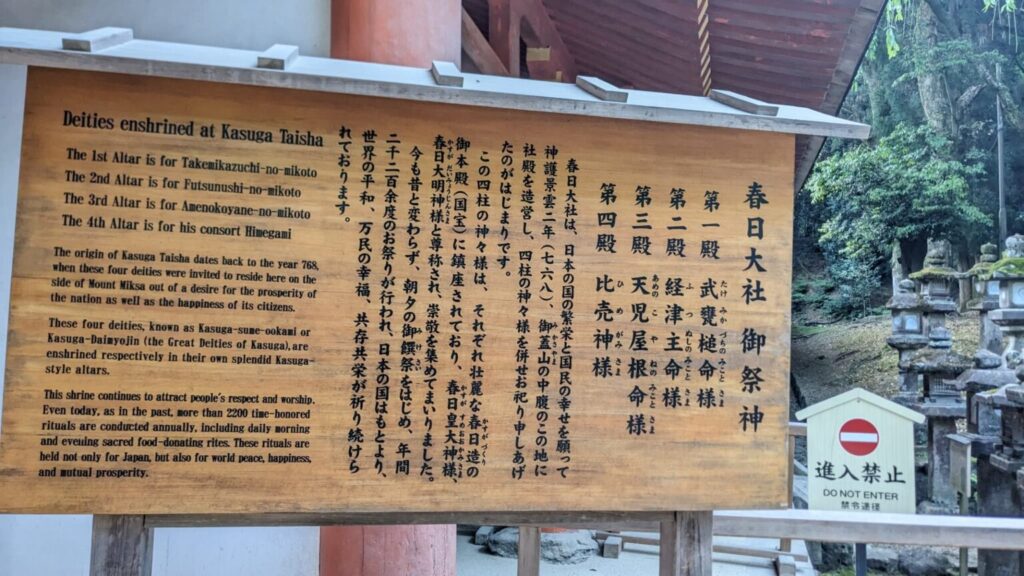 Deities enshrined at Kasuga Taisha
The 1st Altar is for Takemikazuchi-no-mikoto
The 2nd Altar is for Futsunushi-no-mikoto
The 3rd Altar is for Amenokoyane-no-mikoto
The 4th Altar is for his consort Himegami
The origin of Kasuga Taisha dates back to the year 768,
when these four deities were invited to reside here on the
side of Mount Miksa out of a desire for the prosperity of
the nation as well as the happiness of its citizens.
These four deities, known as Kasuga-sume-ookami or
Kasuga-Daimyojin (the Great Deities of Kasuga), are
enshrined respectively in their own splendid Kasuga-
style altars.
This shrine continues to attract people's respect and worship.
Even today, as in the past, more than 2200 time-honored
rituals are conducted annually, including daily morning
and evening sacred food-donating rites. These rituals are
held not only for Japan, but also for world peace, happiness,
and mutual prosperity.
春日大社 御祭神
第一殿 武甕槌命様
第二殿 経津主命様
第三殿 天児屋根命様
第四殿 比売神様
春日大社は、日本の国の繁栄と国民の幸せを願って
神護景雲二年(七六八)、御蓋山の中腹のこの地に
社殿を造営し、四柱の神々様を併せお祀り申しあげ
たのがはじまりです。
この四柱の神々様は、それぞれ壮麗な春日造の
御本殿(国宝)に鎮座されており、春日皇大神様、
春日大明神様と尊称され、崇敬を集めてまいりました。
今も昔と変わらず、朝夕の御饌祭をはじめ、年間
二千二百余度のお祭りが行われ、日本の国はもとより、
世界の平和、万民の幸福、共存共栄が祈り続けら
れております。
進入禁止
DO NOT ENTER
禁令途径